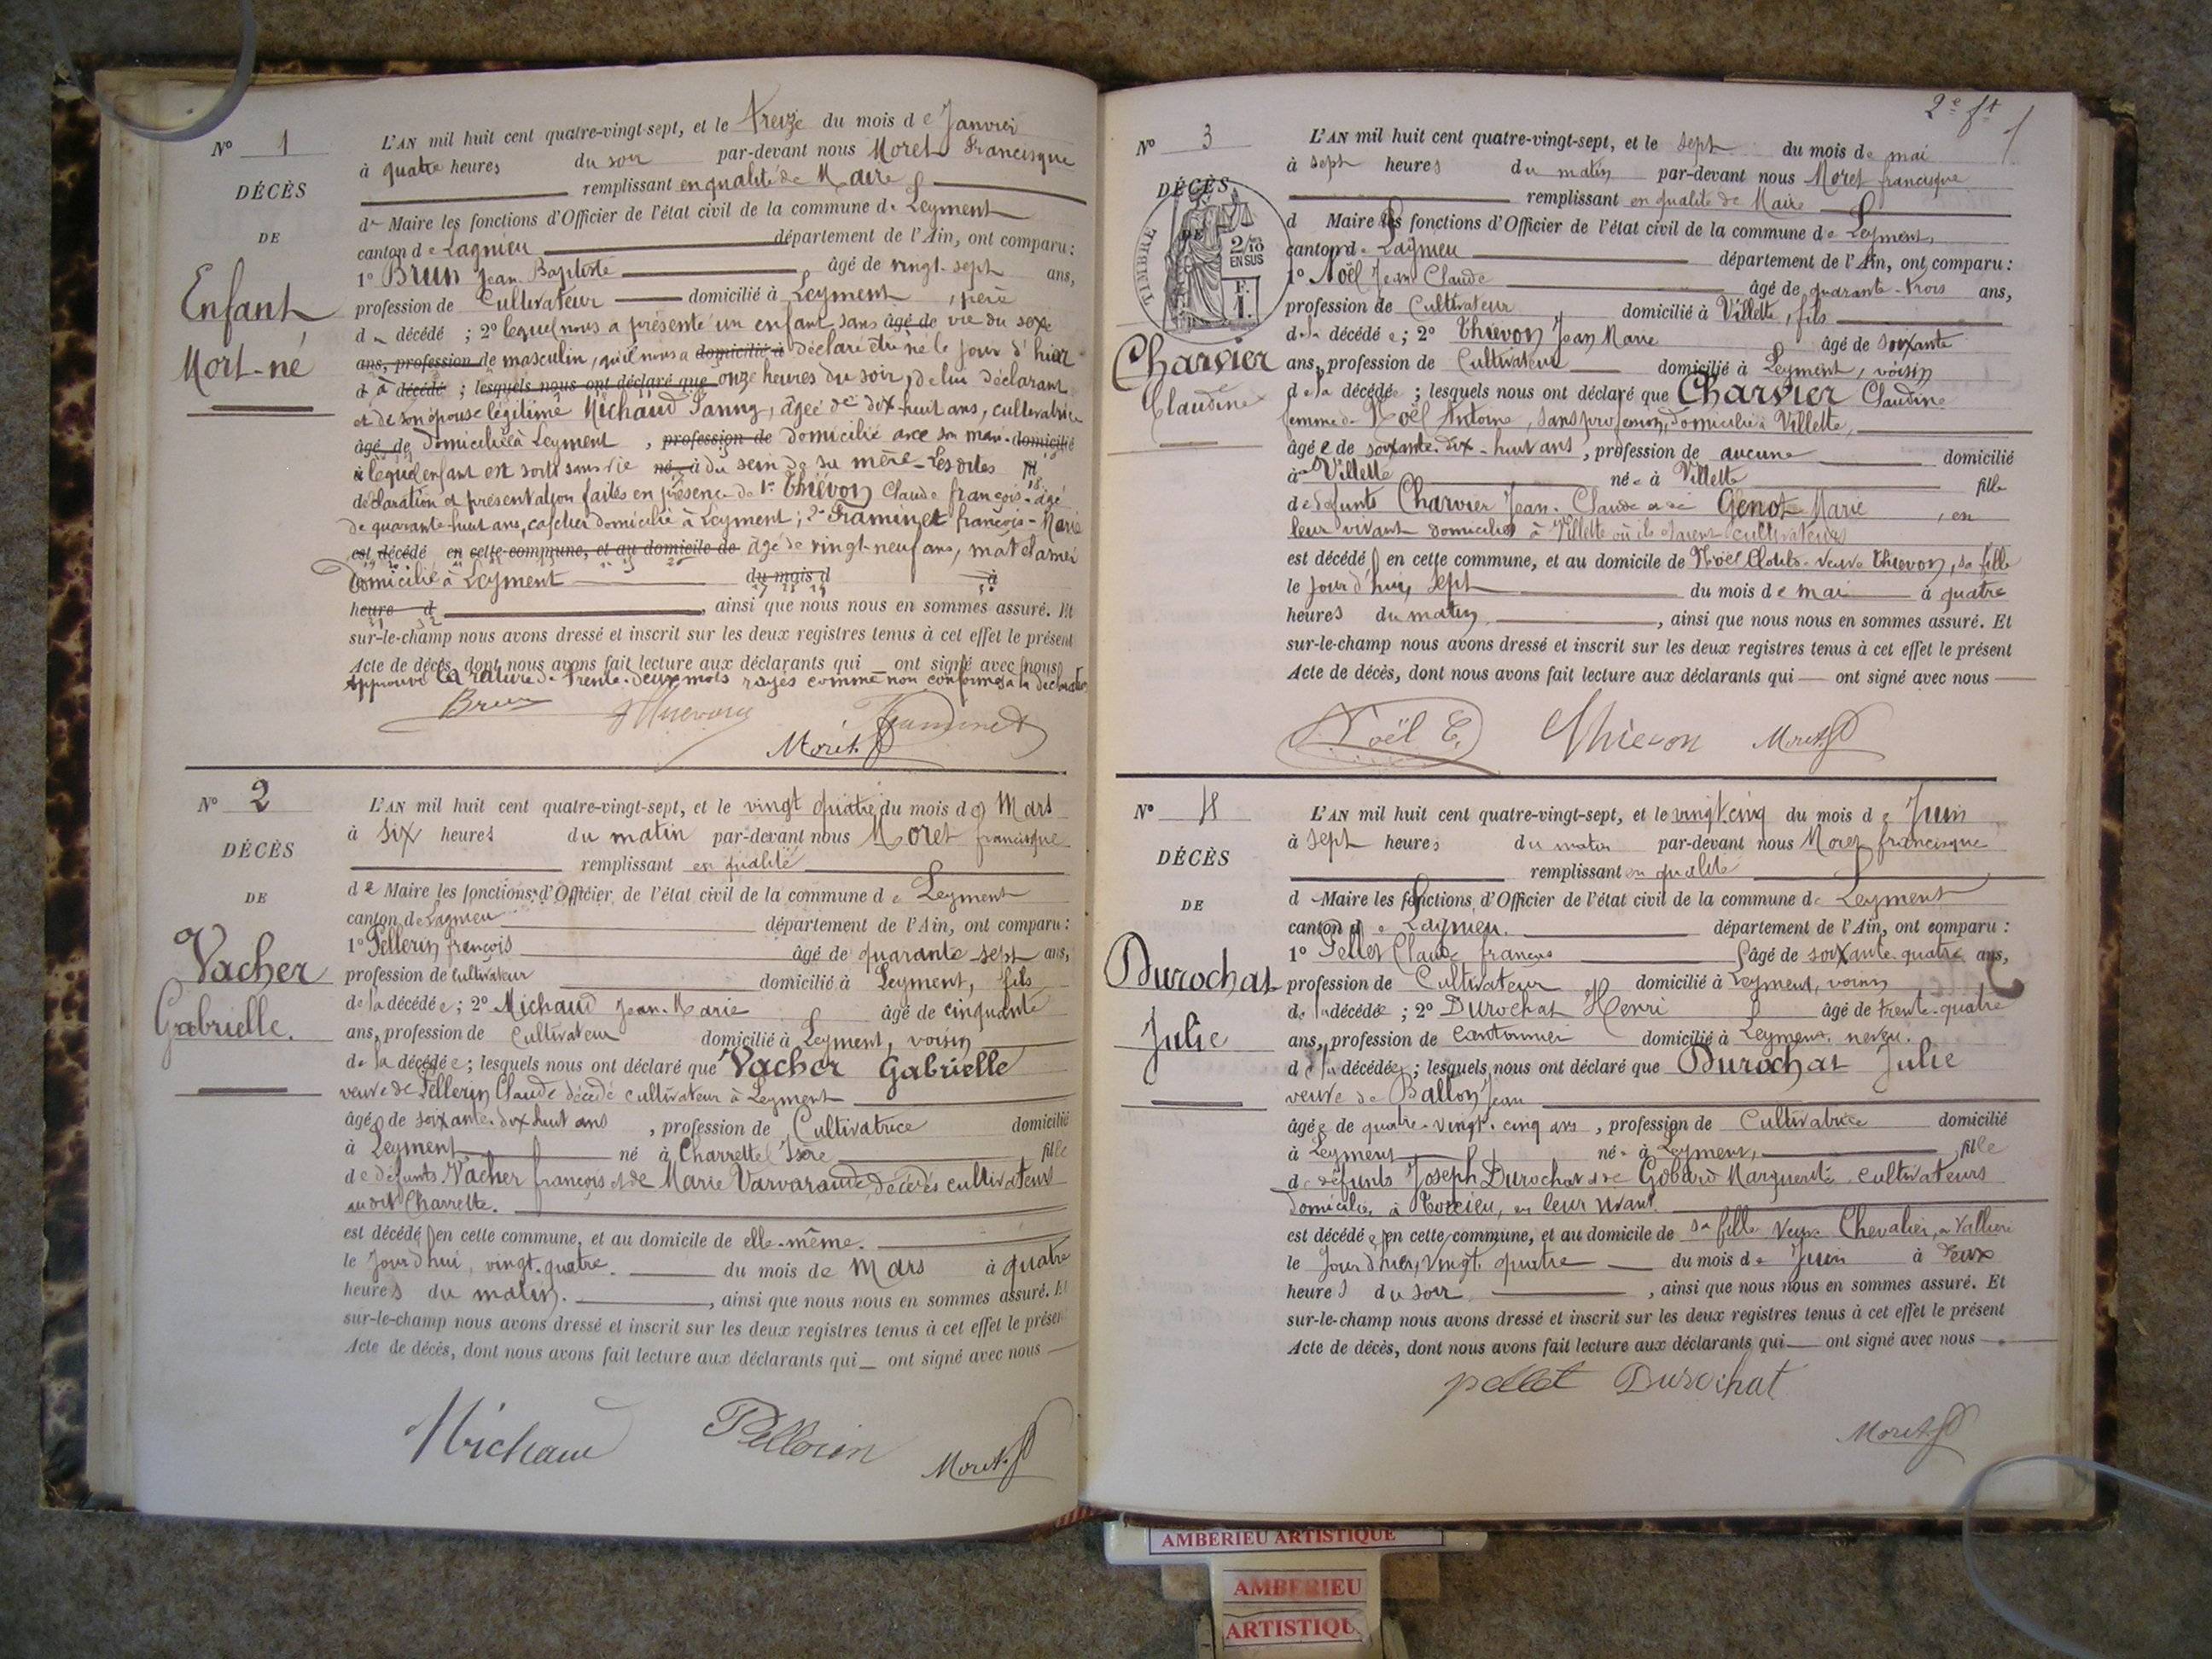 N° 1
DÉCÈS
DE
Enfant
Mort-né
L'AN mil huit cent quatre-vingt-sept, et le treize du mois de Janvier
à quatre heures du soir par-devant nous Moret Francisque
remplissant en qualité de Maire
de Maire les fonctions d'Officier de l'état civil de la commune de Leyment
canton de Lagnieu département de l'Ain, ont comparu :
1° Brun Jean Baptiste âgé de vingt-sept ans,
profession de Cultivateur domicilié à Leyment, père
d décédé ; 2° lequel nous a présenté un enfant sans âgé de vie du sexe
ans, profession de masculin, qu'il nous a domicilié à déclaré être né le jour d'hier
d à décédé ; lesquels nous ont déclaré que onze heures du soir, de lui déclarant
et de son épouse légitime Michaud Fanny, âgée de dix-huit ans, cultivatrice
âgé de domiciliée à Leyment, profession de domicilié avec son mari domicilié
à lequel enfant est sorti sans vie né à du sein de sa mère - Les dites fil
déclaration et présentation faites en présence de 1° Thévon Claude françois âgé
de quarante-huit ans, domicilié à Leyment ; 2° Framinet françois-Marie
est décédé en cette commune, et au domicile de âgé de vingt-neuf ans, matelassier
domicilié à Leyment du mois d à
heure d , ainsi que nous nous en sommes assuré. Et
sur-le-champ nous avons dressé et inscrit sur les deux registres tenus à cet effet le présent
Acte de décès, dont nous avons fait lecture aux déclarants qui ont signé avec nous
Approuvé la rature de trente-deux mots rayés comme non conformes à la déclaration
Brun Thievon Framinet
Moret f
N° 2
DÉCÈS
DE
Vacher
Gabrielle.
L'AN mil huit cent quatre-vingt-sept, et le vingt quatre du mois de Mars
à six heures du matin par-devant nous Moret francisque
remplissant en qualité
de Maire les fonctions d'Officier de l'état civil de la commune de Leyment
canton de Lagnieu département de l'Ain, ont comparu :
1° Pellerin françois âgé de quarante-sept ans,
profession de cultivateur domicilié à Leyment, fils
de la décédée ; 2° Michaud Jean-Marie âgé de cinquante
ans, profession de cultivateur domicilié à Leyment, voisin
de la décédée ; lesquels nous ont déclaré que Vacher Gabrielle
veuve de Pellerin Claude décédé cultivateur à Leyment
âgé de soixante-dix huit ans, profession de Cultivatrice domicilié
à Leyment né à Charrette Isère fille
de défunts Vacher françois et de Marie Varvaraude, décédés cultivateurs
audit Charrette.
est décédé en cette commune, et au domicile de elle-même.
le jourd'hui, vingt-quatre. du mois de Mars à quatre
heures du matin. , ainsi que nous nous en sommes assuré. Et
sur-le-champ nous avons dressé et inscrit sur les deux registres tenus à cet effet le présent
Acte de décès, dont nous avons fait lecture aux déclarants qui ont signé avec nous
Michaud Pellerin Moret f
2e ft
N° 3
DÉCÈS
DE
TIMBRE
2/10
EN SUS
F.
1.
Charvier
Claudine
L'AN mil huit cent quatre-vingt-sept, et le sept du mois de mai
à sept heures du matin par-devant nous Moret francisque
remplissant en qualité de Maire
d Maire les fonctions d'Officier de l'état civil de la commune de Leyment
canton de Lagnieu département de l'Ain, ont comparu :
1° Noël Jean Claude âgé de quarante-trois ans,
profession de Cultivateur domicilié à Villette, fils
de la décédée ; 2° Thievon Jean Marie âgé de soixante
ans, profession de Cultivateur domicilié à Leyment, voisin
de la décédée ; lesquels nous ont déclaré que Charvier Claudine
femme de Noël Antoine, sans profession, domiciliée à Villette,
âgée de soixante-dix-huit ans, profession de aucune domicilié
à Villette née à Villette fille
de défunts Charvier Jean-Claude et de Genot Marie, en
leur vivant domiciliés à Villette où ils étaient cultivateurs
est décédé en cette commune, et au domicile de Noël veuve Thievon, sa fille
le jourd'hui, sept du mois de mai à quatre
heures du matin, , ainsi que nous nous en sommes assuré. Et
sur-le-champ nous avons dressé et inscrit sur les deux registres tenus à cet effet le présent
Acte de décès, dont nous avons fait lecture aux déclarants qui ont signé avec nous
Noël C. Thievon Moret f
N° 4
DÉCÈS
DE
Durochat
Julie
L'AN mil huit cent quatre-vingt-sept, et le vingt cinq du mois de Juin
à sept heures du matin par-devant nous Moret francisque
remplissant en qualité
d Maire les fonctions d'Officier de l'état civil de la commune de Leyment
canton de Lagnieu. département de l'Ain, ont comparu :
1° Pellet Claude françois âgé de soixante-quatre ans,
profession de Cultivateur domicilié à Leyment, voisin
de la décédée ; 2° Durochat Henri âgé de trente-quatre
ans, profession de Cantonnier domicilié à Leyment, neveu.
de la décédée ; lesquels nous ont déclaré que Durochat Julie
veuve de Ballon Jean
âgée de quatre-vingt-cinq ans, profession de Cultivatrice domicilié
à Leyment née à Leyment, fille
de défunts Joseph Durochat et de Gobard Marguerite, cultivateurs
domiciliés à Torcieu, en leur vivant
est décédée en cette commune, et au domicile de sa fille veuve Chevalier, à
le jour d'hier, vingt quatre du mois de Juin à deux
heures du soir , ainsi que nous nous en sommes assuré. Et
sur-le-champ nous avons dressé et inscrit sur les deux registres tenus à cet effet le présent
Acte de décès, dont nous avons fait lecture aux déclarants qui ont signé avec nous
pellet Durochat
Moret f
AMBERIEU ARTISTIQUE
AMBERIEU
ARTISTIQU